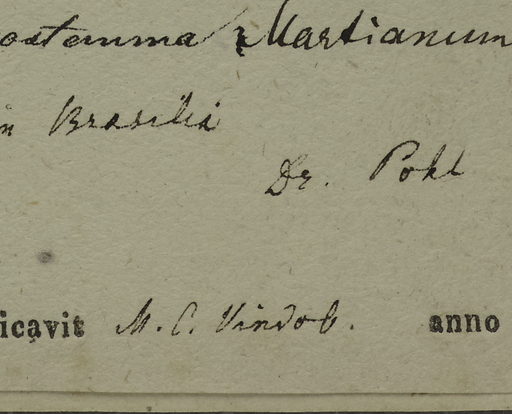 ostemma Martianum
in Brasilia
Dr. Pohl
icavit M. C. Vindob. anno